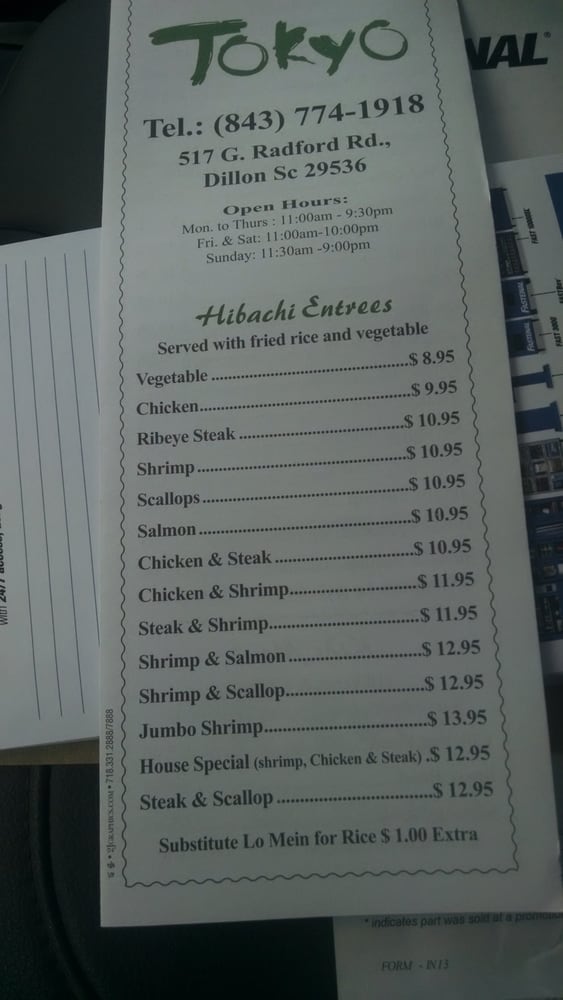 TOKYO
Tel.: (843) 774-1918
517 G. Radford Rd.,
Dillon Sc 29536
Open Hours:
Mon. to Thurs : 11:00am - 9:30pm
Fri. & Sat: 11:00am-10:00pm
Sunday: 11:30am -9:00pm
Hibachi Entrees
Served with fried rice and vegetable
Vegetable ........................................$ 8.95
Chicken...........................................$ 9.95
Ribeye Steak ..................................$ 10.95
Shrimp ..........................................$ 10.95
Scallops.........................................$ 10.95
Salmon ..........................................$ 10.95
Chicken & Steak ............................$ 10.95
Chicken & Shrimp..........................$ 11.95
Steak & Shrimp..............................$ 11.95
Shrimp & Salmon ..........................$ 12.95
Shrimp & Scallop...........................$ 12.95
Jumbo Shrimp................................$ 13.95
House Special (shrimp, Chicken & Steak) .$ 12.95
Steak & Scallop ..............................$ 12.95
Substitute Lo Mein for Rice $ 1.00 Extra
718.331.2888/7888
NAL®
with 24/7 access,
FASTENAL
* indicates part was sold at a
FORM - IN13